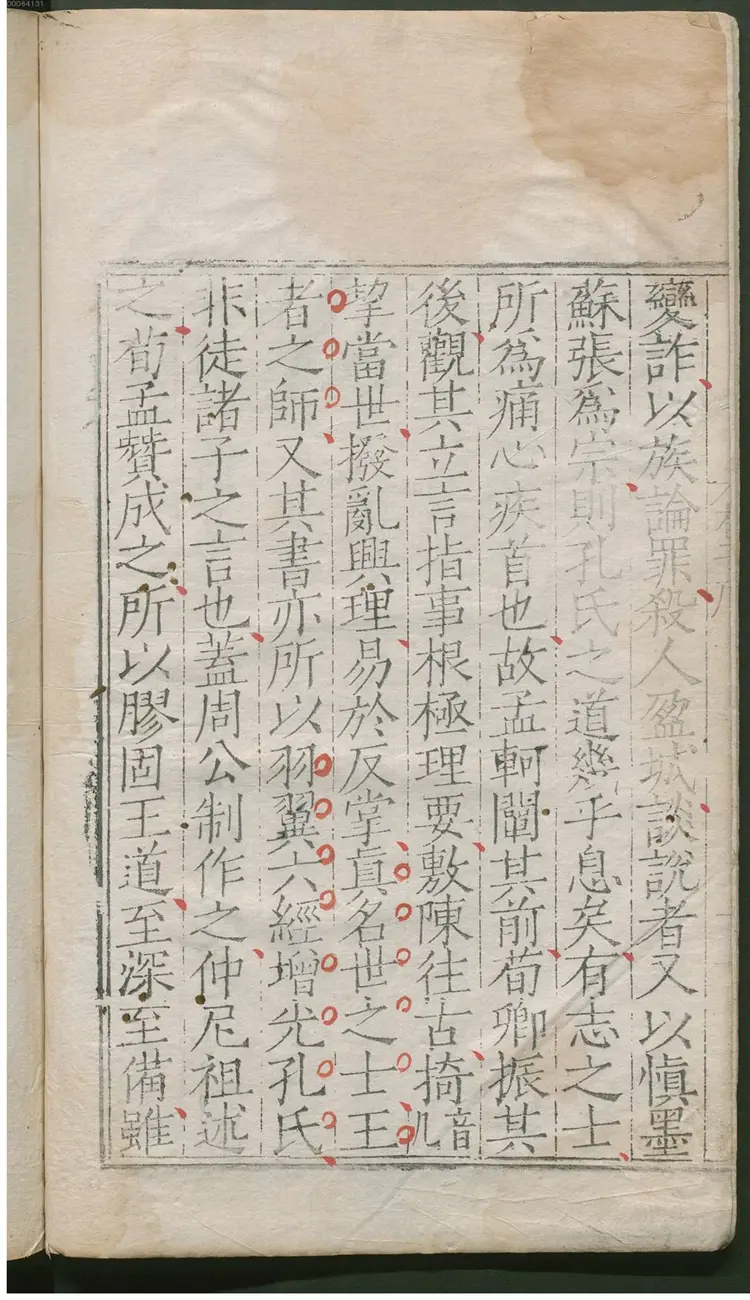 00064131
變詐以族論罪殺人盈城談說者又以慎墨
蘇張爲宗則孔氏之道幾乎息矣有志之士
所爲痛心疾首也故孟軻闡其前荀卿振其
後觀其立言指事根極理要敷陳往古掎音几
挈當世撥亂興理易於反掌眞名世之士王
者之師又其書亦所以羽翼六經增光孔氏
非徒諸子之言也蓋周公制作之仲尼祖述
之荀孟贊成之所以膠固王道至深至備雖